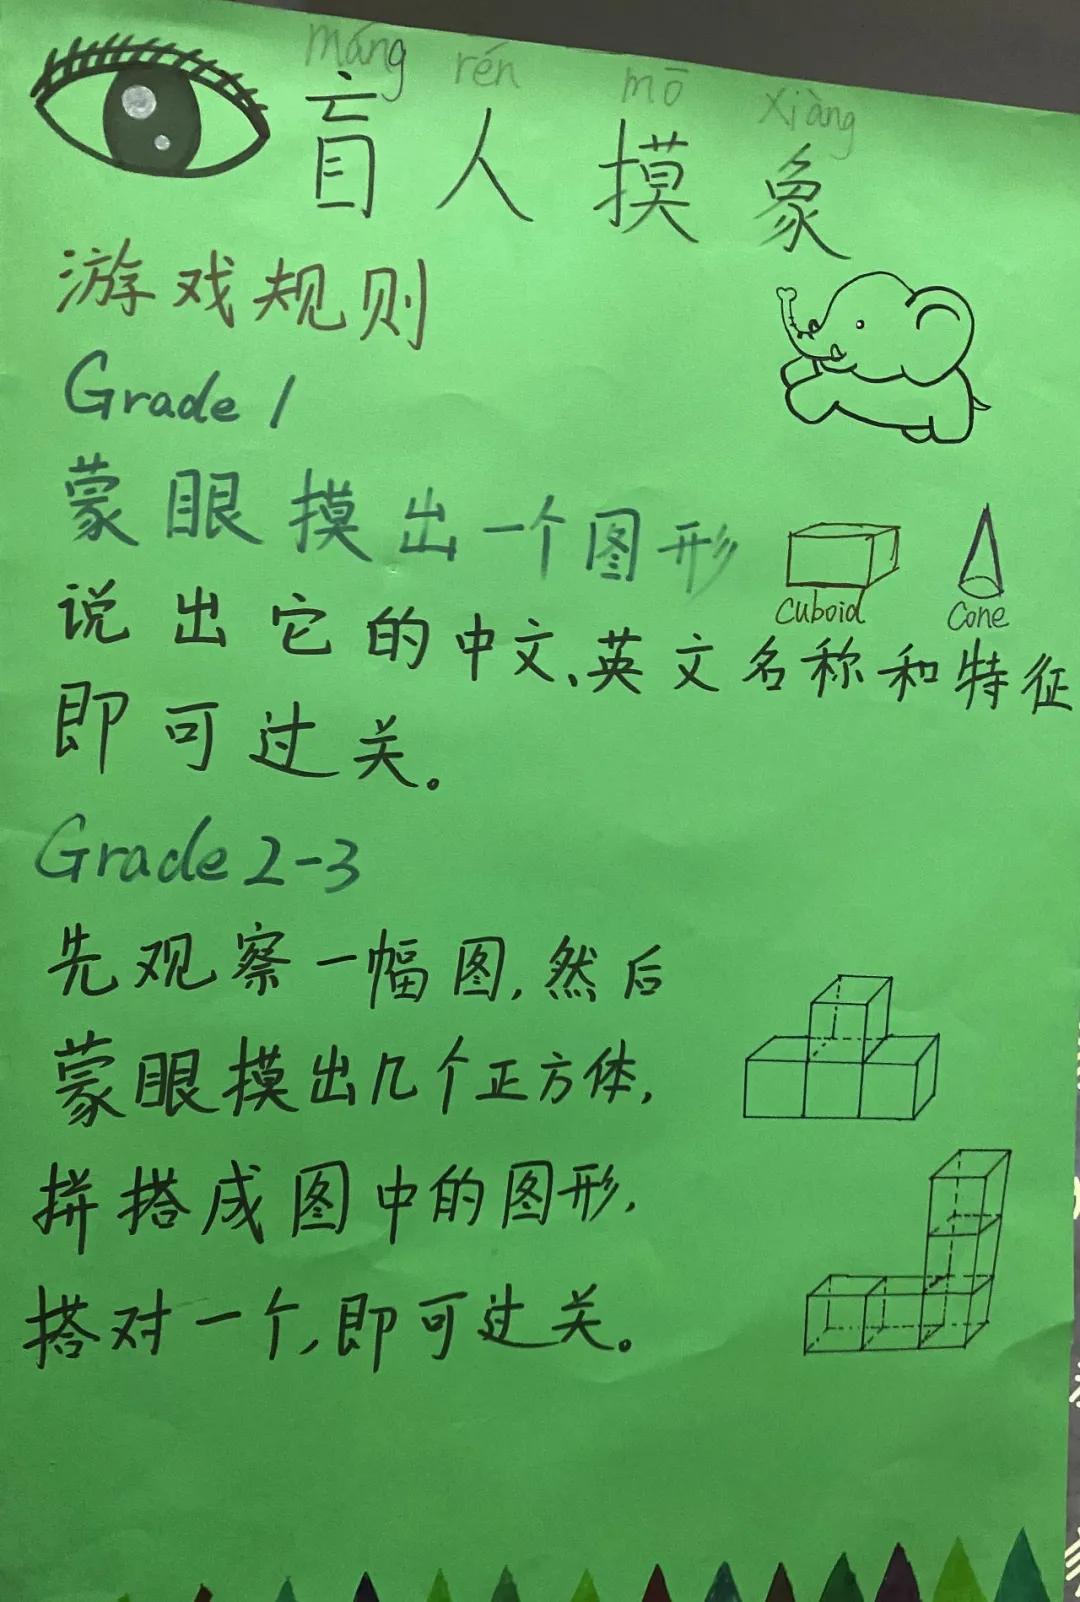 máng rén mō xiàng
盲人摸象
游戏规则
Grade 1
蒙眼摸出一个图形
Cuboid Cone
说出它的中文、英文名称和特征
即可过关。
Grade 2-3
先观察一幅图,然后
蒙眼摸出几个正方体,
拼搭成图中的图形,
搭对一个,即可过关。